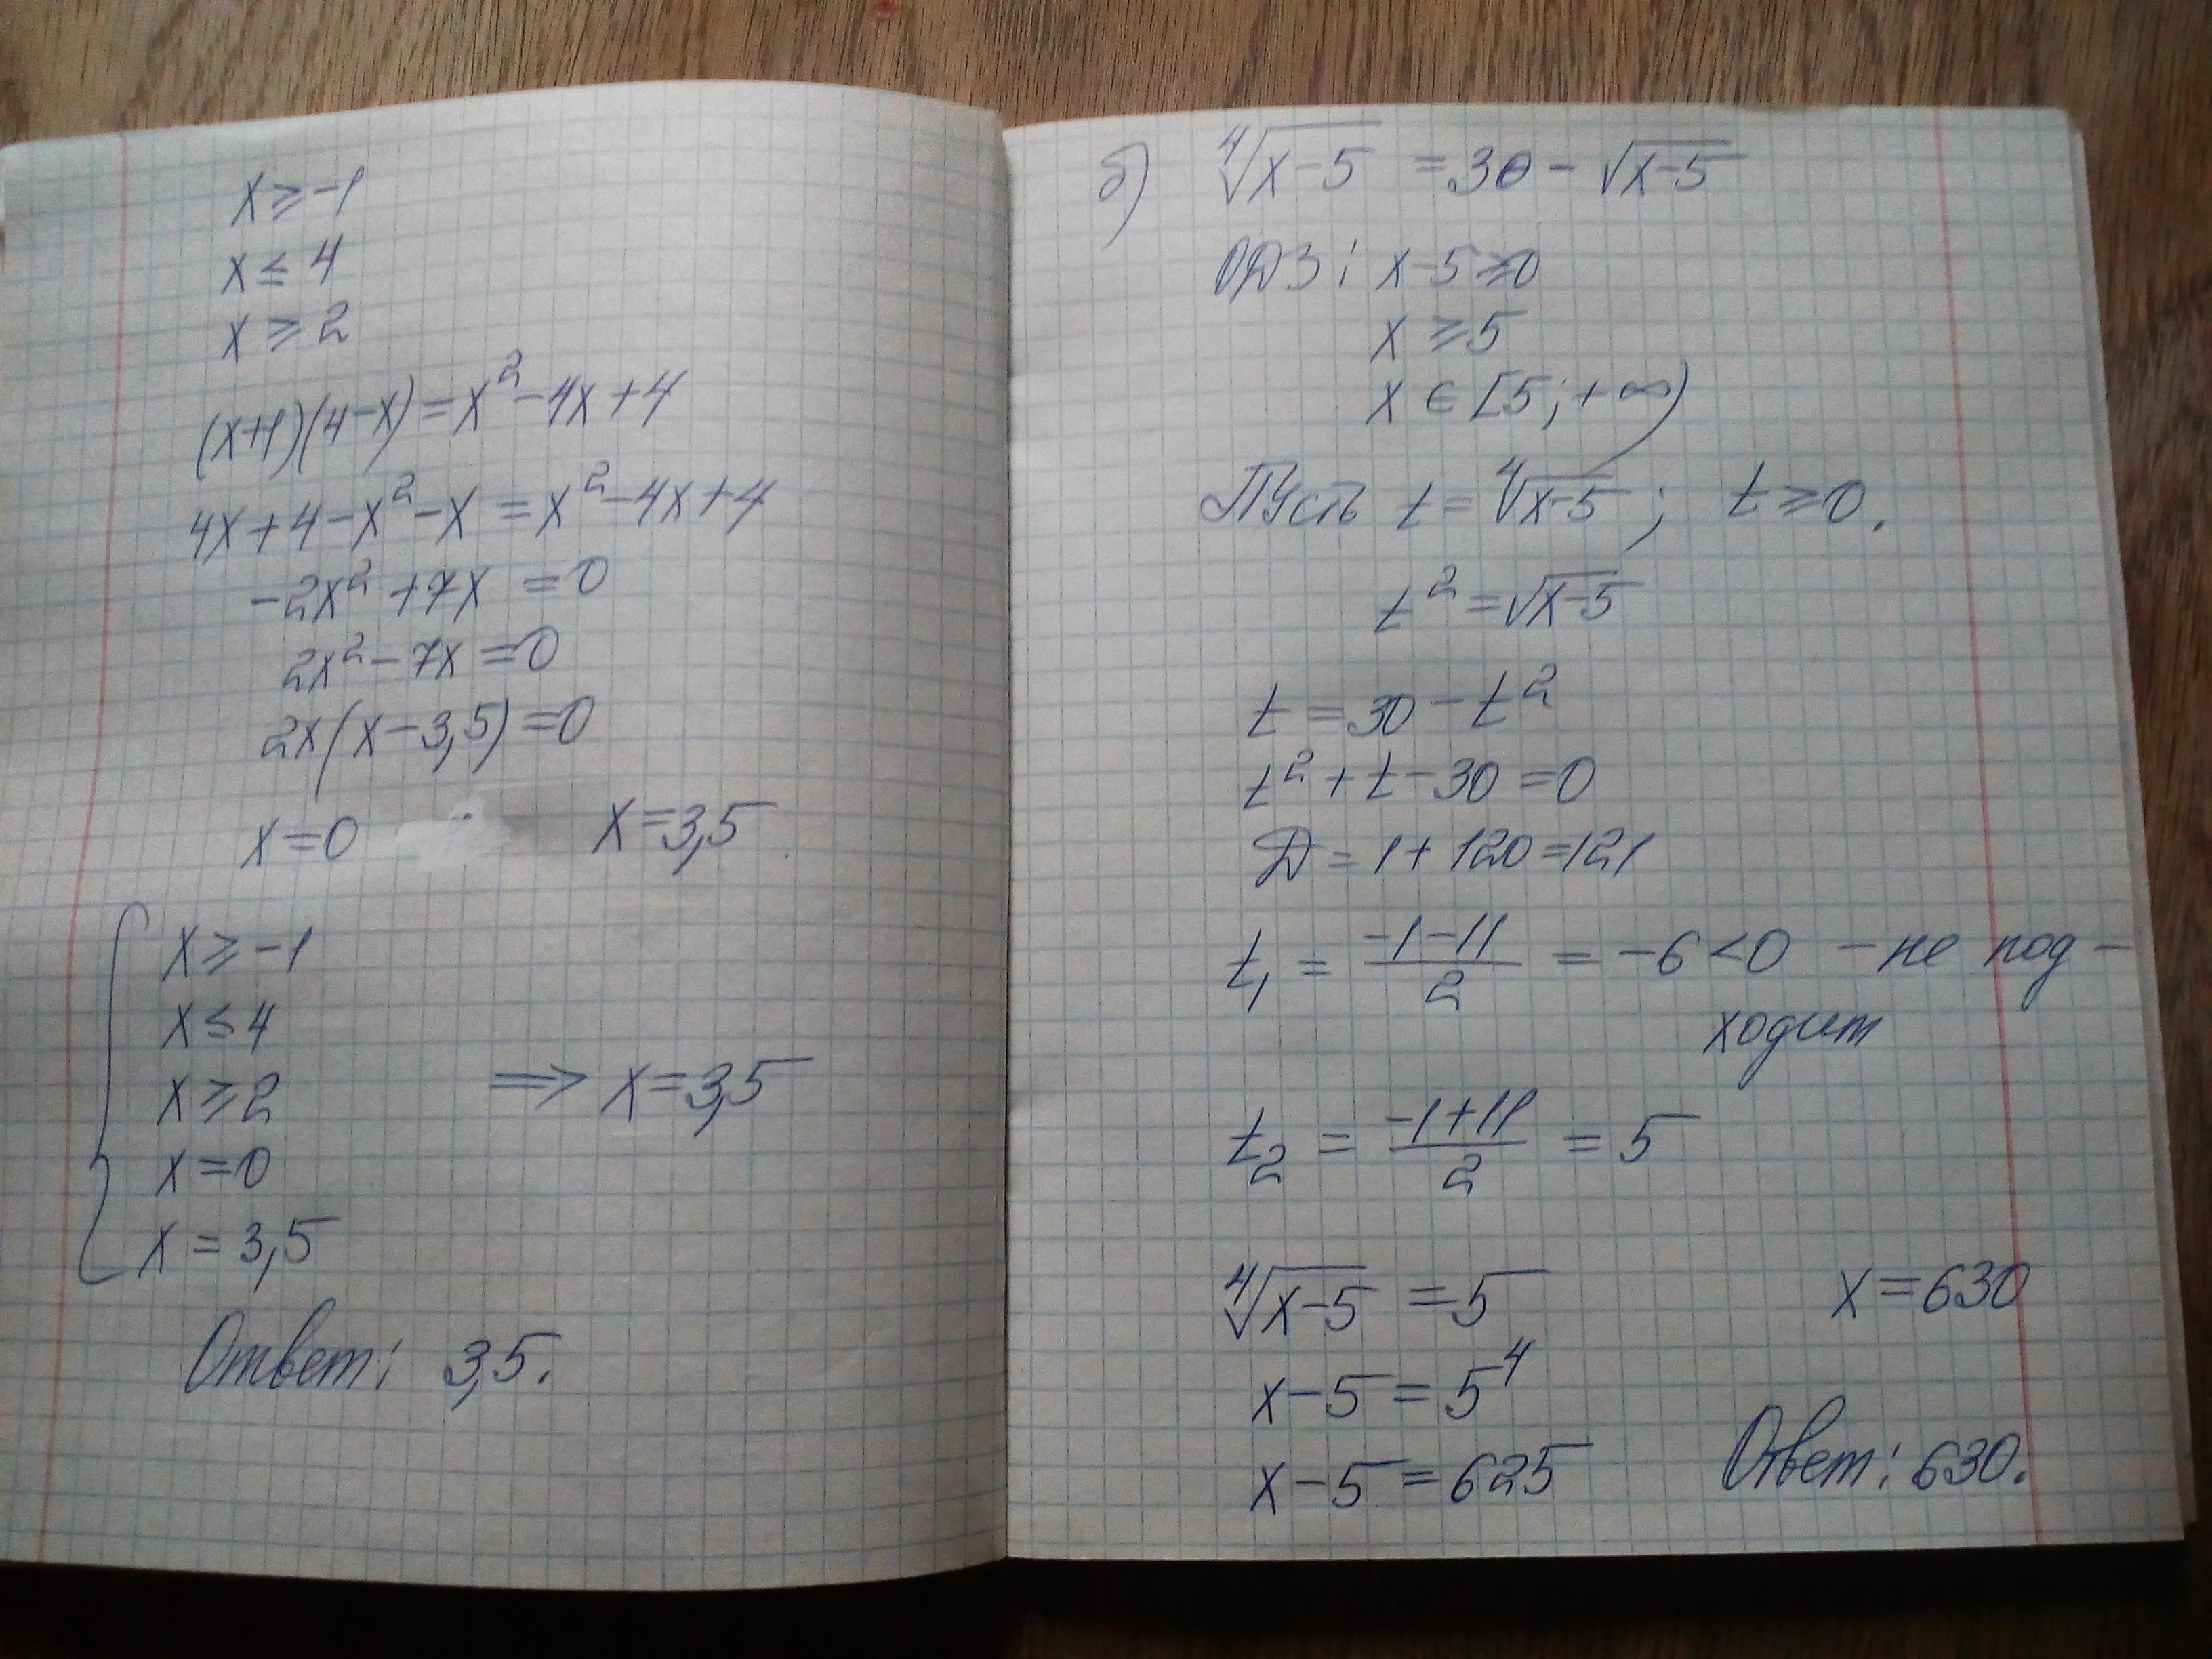 x ≥ -1
x ≤ 4
x ≥ 2
(x+1)(4-x) = x² - 4x + 4
4x + 4 - x² - x = x² - 4x + 4
-2x² + 7x = 0
2x² - 7x = 0
2x(x - 3,5) = 0
x = 0 x = 3,5
x ≥ -1
x ≤ 4
x ≥ 2 ⟹ x = 3,5
x = 0
x = 3,5
Ответ: 3,5.
б) ⁴√(x-5) = 30 - √(x-5)
ОДЗ: x-5 ≥ 0
x ≥ 5
x ∈ [5; +∞)
Пусть t = ⁴√(x-5); t ≥ 0.
t² = √(x-5)
t = 30 - t²
t² + t - 30 = 0
Д = 1 + 120 = 121
t₁ = (-1-11)/2 = -6 < 0 - не под-
ходит
t₂ = (-1+11)/2 = 5
⁴√(x-5) = 5 x = 630
x - 5 = 5⁴
x - 5 = 625 Ответ: 630.